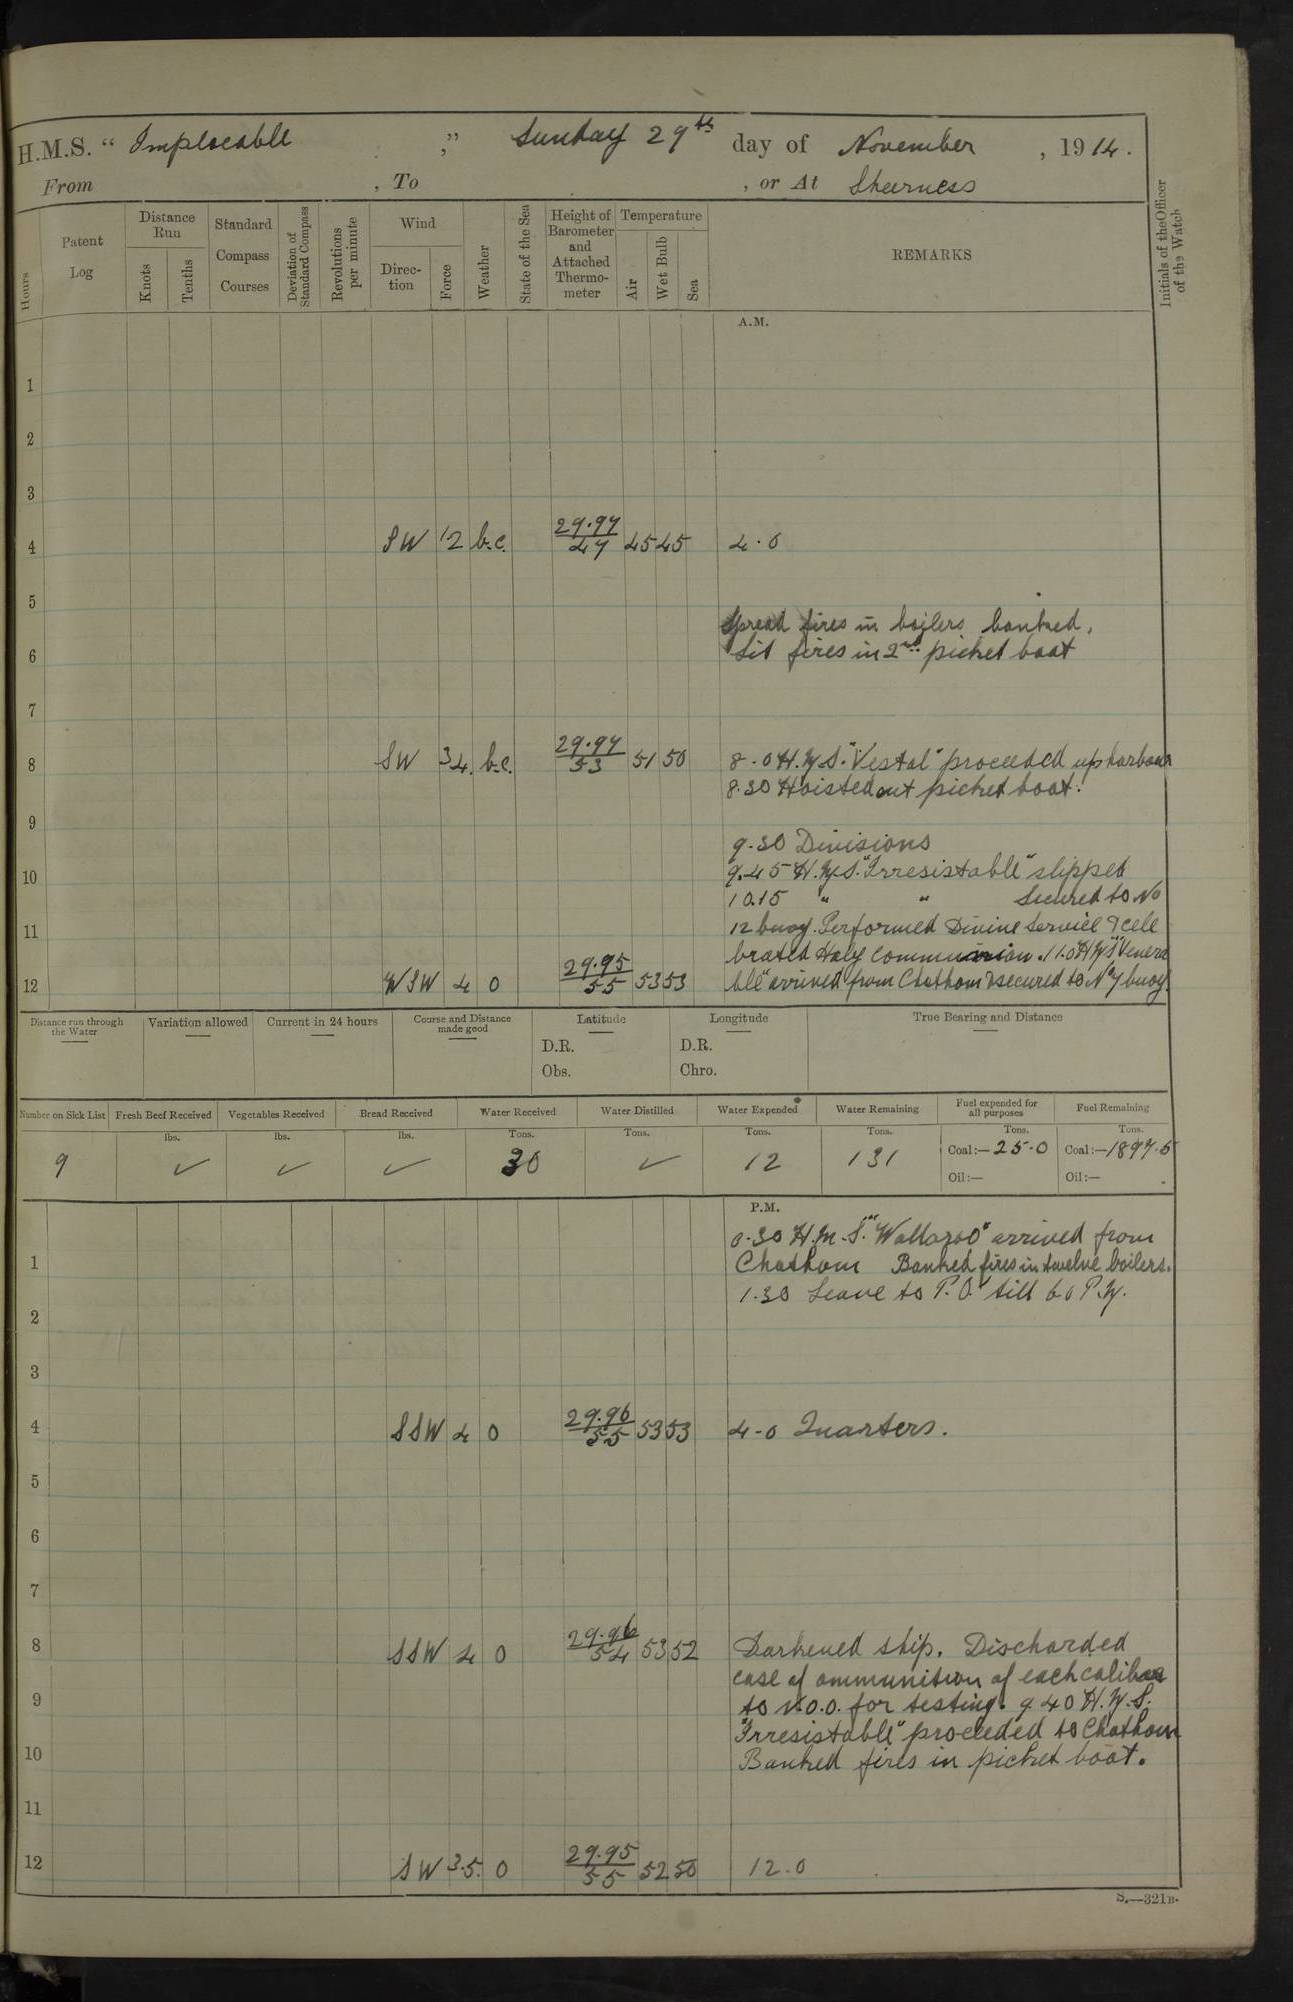 H.M.S. “ Implacable ,” Sunday 29th day of November , 1914.
From , To , or At Sheerness
Hours
Patent Log
Distance Run
Knots
Tenths
Standard Compass Courses
Deviation of Standard Compass
Revolutions per minute
Wind
Direction
Force
Weather
State of the Sea
Height of Barometer and Attached Thermometer
Temperature
Air
Wet Bulb
Sea
REMARKS
Initials of the Officer of the Watch
A.M.
1
2
3
4 SW 12 b.c. 29.97 47 45 45 4.0
5
Spread fires in boilers banked,
6 Lit fires in 2nd picket boat
7
8 SW 34. b.c. 29.97 53 51 50 8.0 H.M.S. "Vestal" proceeded up harbour
8.30 Hoisted out picket boat.
9
9.30 Divisions
9.45 H.M.S. "Irresistable" slipped
10
10.15 " " Secured to No
12 buoy. Performed Divine Service & cele
11
brated Holy Communion. 11.0 H.M.S "Venera
12 WSW 4 0 29.95 55 53 53 ble" arrived from Chatham & secured to No 7 buoy.
Distance run through the Water
Variation allowed
Current in 24 hours
Course and Distance made good
Latitude
D.R.
Obs.
Longitude
D.R.
Chro.
True Bearing and Distance
Number on Sick List
Fresh Beef Received
Vegetables Received
Bread Received
Water Received
Water Distilled
Water Expended
Water Remaining
Fuel expended for all purposes
Fuel Remaining
lbs. lbs. lbs. Tons. Tons. Tons. Tons. Tons. Tons.
9 ✓ ✓ ✓ 30 ✓ 12 131 Coal:—25.0 Coal:—1897.5
Oil:— Oil:—
P.M.
0.30 H.M.S. "Wallaroo" arrived from
1 Chatham Banked fires in twelve boilers.
1.30 Leave to P.O.s till 6.0 P.M.
2
3
4 SSW 4 0 29.96 55 53 53 4.0 Quarters.
5
6
7
8 SSW 4 0 29.96 54 53 52 Darkened ship. Discharded
case of ammunition of each calibar
9 to N.O.O. for testing. 9 40 H.M.S.
"Irresistable" proceeded to Chatham
10 Banked fires in picket boat.
11
12 SW 3.5. 0 29.95 55 52 50 12.0
S.—321B.